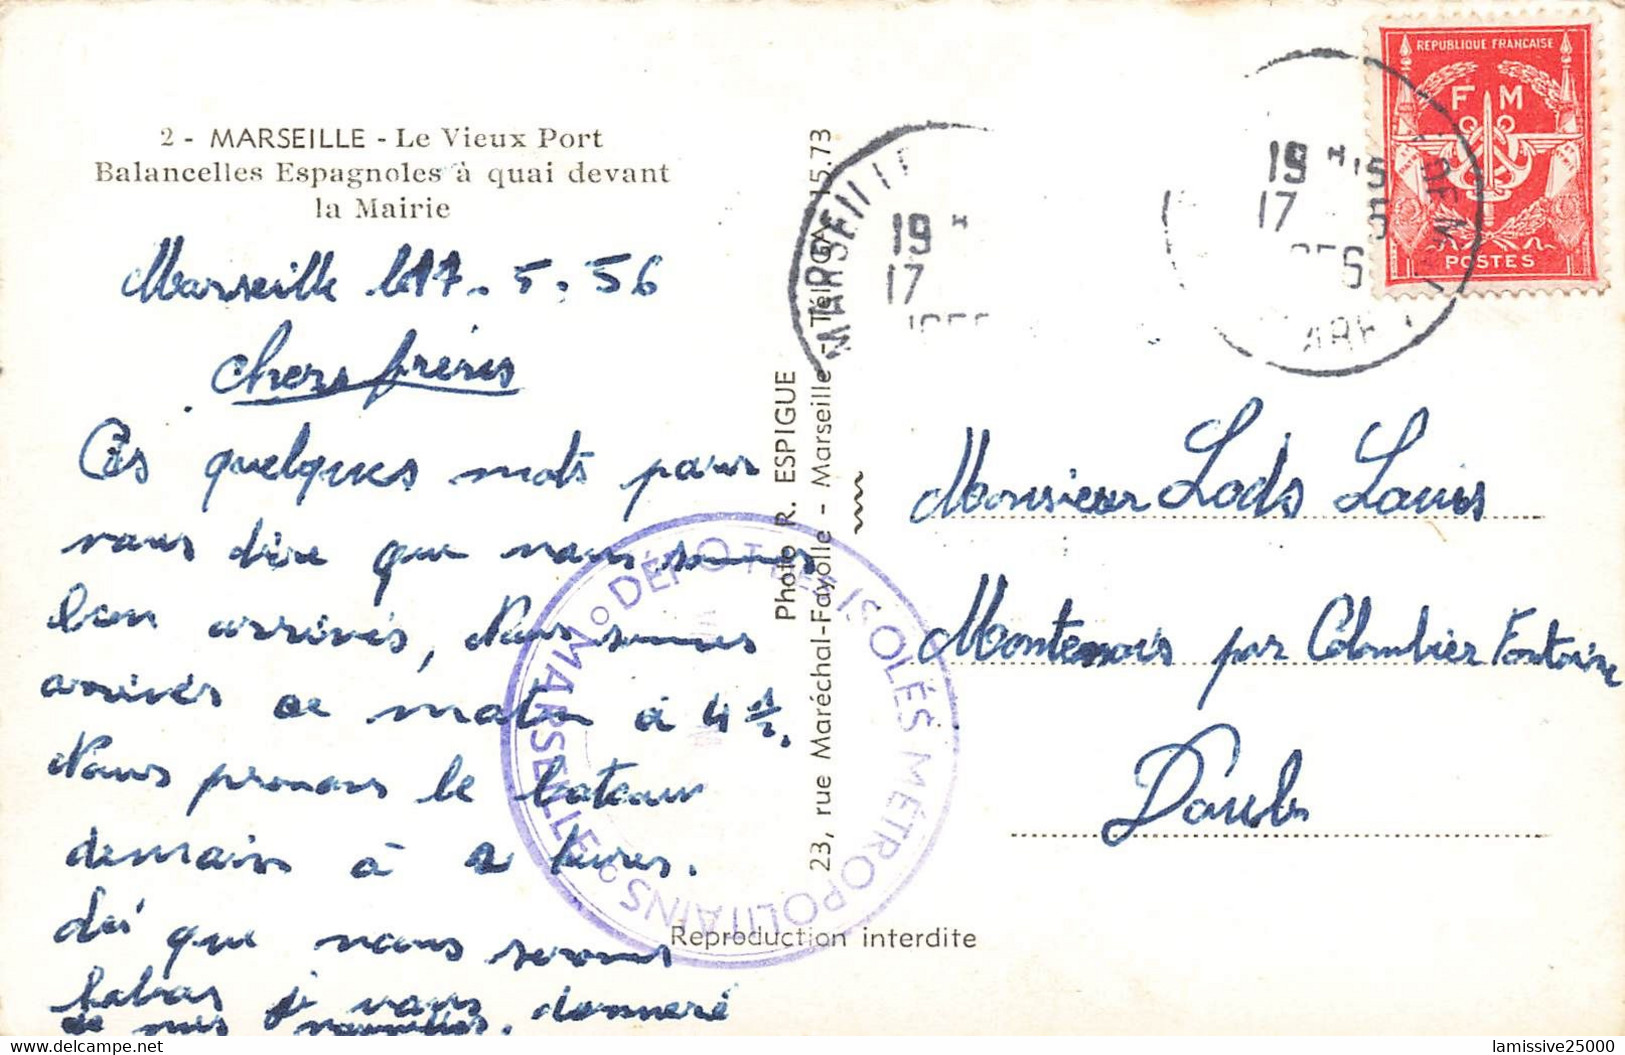 2 - MARSEILLE - Le Vieux Port
Balancelles Espagnoles à quai devant
la Mairie
Marseille le 17. 5. 56
Chers frères
Ces quelques mots pour
vous dire que nous sommes
bien arrivés, Nous sommes
arrivés ce matin à 4 1/2.
Nous prenons le bateau
demain à 2 heures.
Dés que nous serons
labas je vous donneré
de mes nouvelles.
Photo R. ESPIGUE
23, rue Maréchal-Fayolle - Marseille - Tél. GA. 15.73
Reproduction interdite
° DÉPOT DES ISOLÉS MÉTROPOLITAINS °
MARSEILLE
MARSEILLE
19 H
17
19 H 15
17 5
RÉPUBLIQUE FRANÇAISE
F M
POSTES
Monsieur Lods Louis
Montenois par Colombier Fontaine
Doubs
lamissive25000